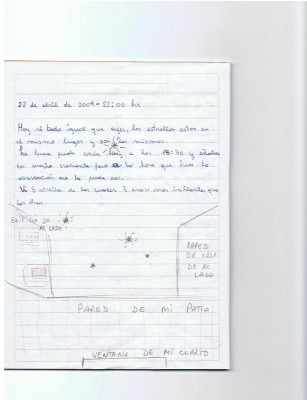 28 de abril de 2009 - 22:00 hs
Hoy vi todo igual que ayer, las estrellas están en
el mismo lugar y son las mismas.
La luna pude verla hoy a las 18:30 y estaba
en cuarto creciente pero a la hora que hice la
observación no la pude ver.
Vi 5 estrellas de las cuales 3 eran más brillantes que
las otras
EDIFICIO DE
AL LADO
PARED
DE CASA
DE AL
LADO
PARED DE MI PATIO
VENTANA DE MI CUARTO